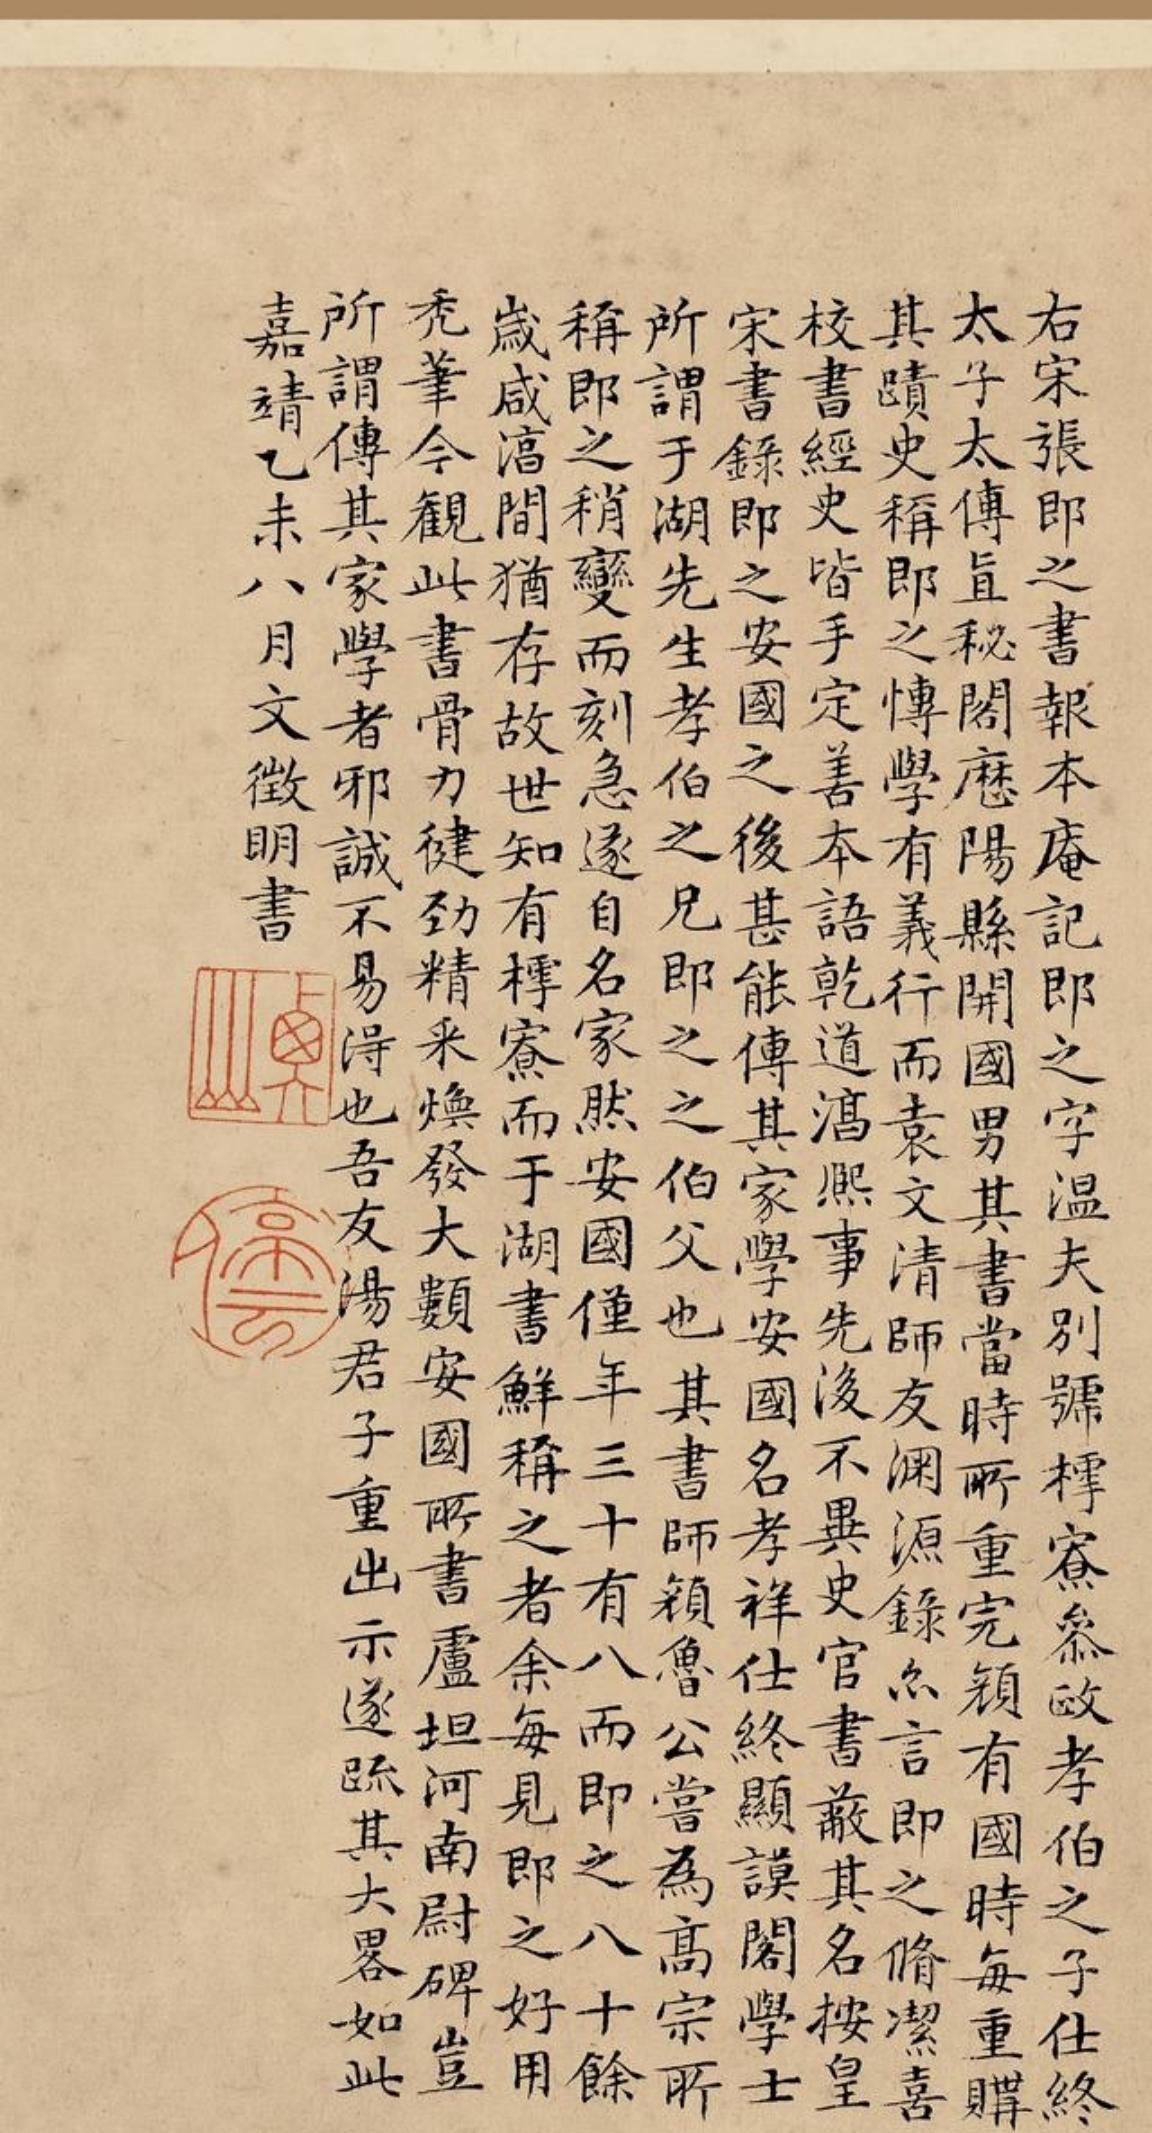 右宋張即之書報本庵記即之字温夫別號樗寮叅政孝伯之子仕終
太子太傅直秘閣歴陽縣開國男其書當時所重完顔有國時每重購
其蹟史稱即之博學有義行而袁文清師友渊源錄亦言即之脩潔喜
校書經史皆手定善本語乾道淳熙事先後不異史官書蔽其名按皇
宋書錄即之安國之後甚能傳其家學安國名孝祥仕終顯謨閣學士
所謂于湖先生孝伯之兄即之之伯父也其書師顔魯公嘗為高宗所
稱即之稍變而刻急遂自名家然安國僅年三十有八而即之八十餘
歲咸淳間猶存故世知有樗寮而于湖書鮮稱之者余每見即之好用
禿筆今觀此書骨力健勁精采煥發大類安國所書盧坦河南尉碑豈
所謂傳其家學者邪誠不易得也吾友湯君子重出示遂疏其大畧如此
嘉靖乙未八月文徵明書
貞山
停雲